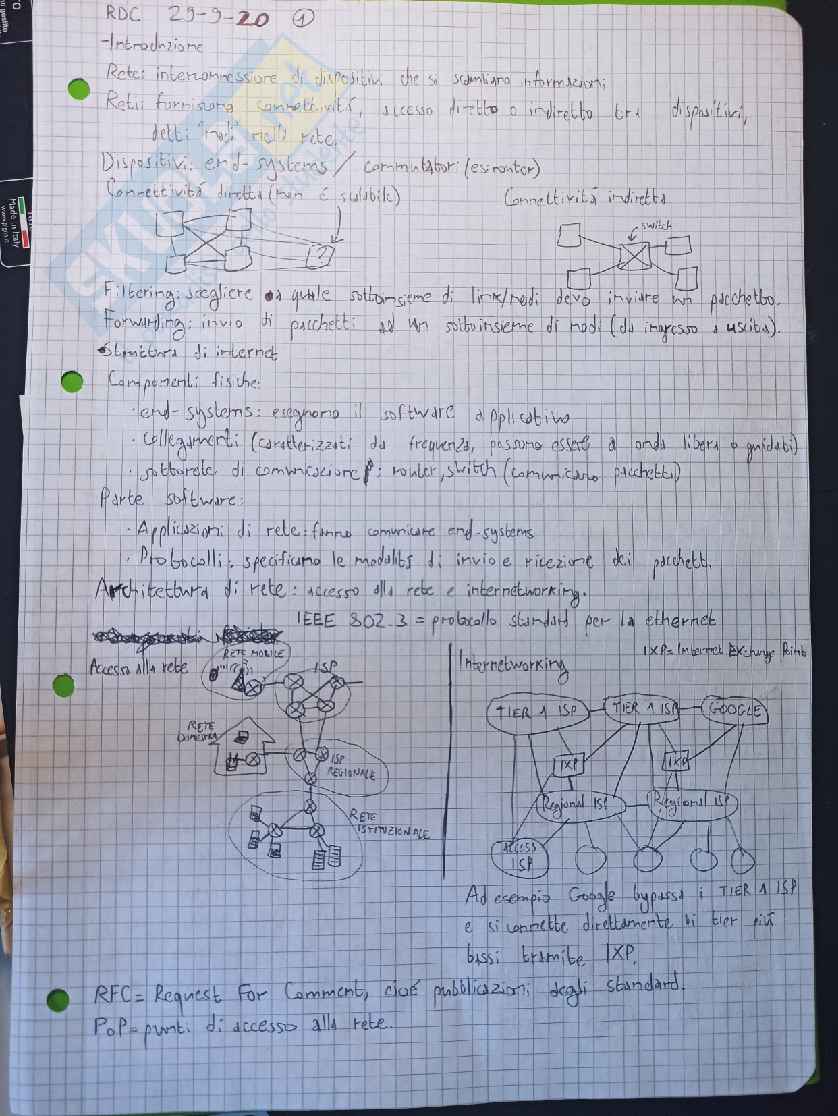 RDC 29-9-20 1
-Introduzione
Rete: interconnessione di dispositivi che si scambiano informazioni
Reti: forniscono connettività, accesso diretto o indiretto tra dispositivi,
detti "nodi" rete.
Dispositivi: end-systems / commutatori (es: router)
Connettività diretta (non è scalabile)
Connettività indiretta
switch
?
Filtering: scegliere a quale sottoinsieme di link/nodi devo inviare un pacchetto.
Forwarding: invio di pacchetti ad un sottoinsieme di nodi (da ingresso a uscita).
-Struttura di internet
Componenti fisiche:
· end-systems: eseguono il software applicativo
· Collegamenti (caratterizzati da frequenza, possono essere a onda libera o guidati)
· sottorete di comunicazione: router, switch (comunicano pacchetti)
Parte software:
· Applicazioni di rete: fanno comunicare end-systems
· Protocolli: specificano le modalità di invio e ricezione dei pacchetti.
Architettura di rete: accesso alla rete e internetworking.
IEEE 802.3 = protocollo standard per la ethernet
Accesso alla rete
RETE MOBILE
ISP
RETE DOMESTICA
ISP REGIONALE
RETE ISTITUZIONALE
Internetworking
IXP= Internet Exchange Points
TIER 1 ISP
TIER 1 ISP
GOOGLE
IXP
IXP
Regional ISP
Regional ISP
ACCESS ISP
Ad esempio Google bypassa i TIER 1 ISP
e si connette direttamente ai tier più
bassi tramite IXP.
RFC= Request For Comment, cioè pubblicazioni degli standard.
PoP= punti di accesso alla rete.
Made in Italy